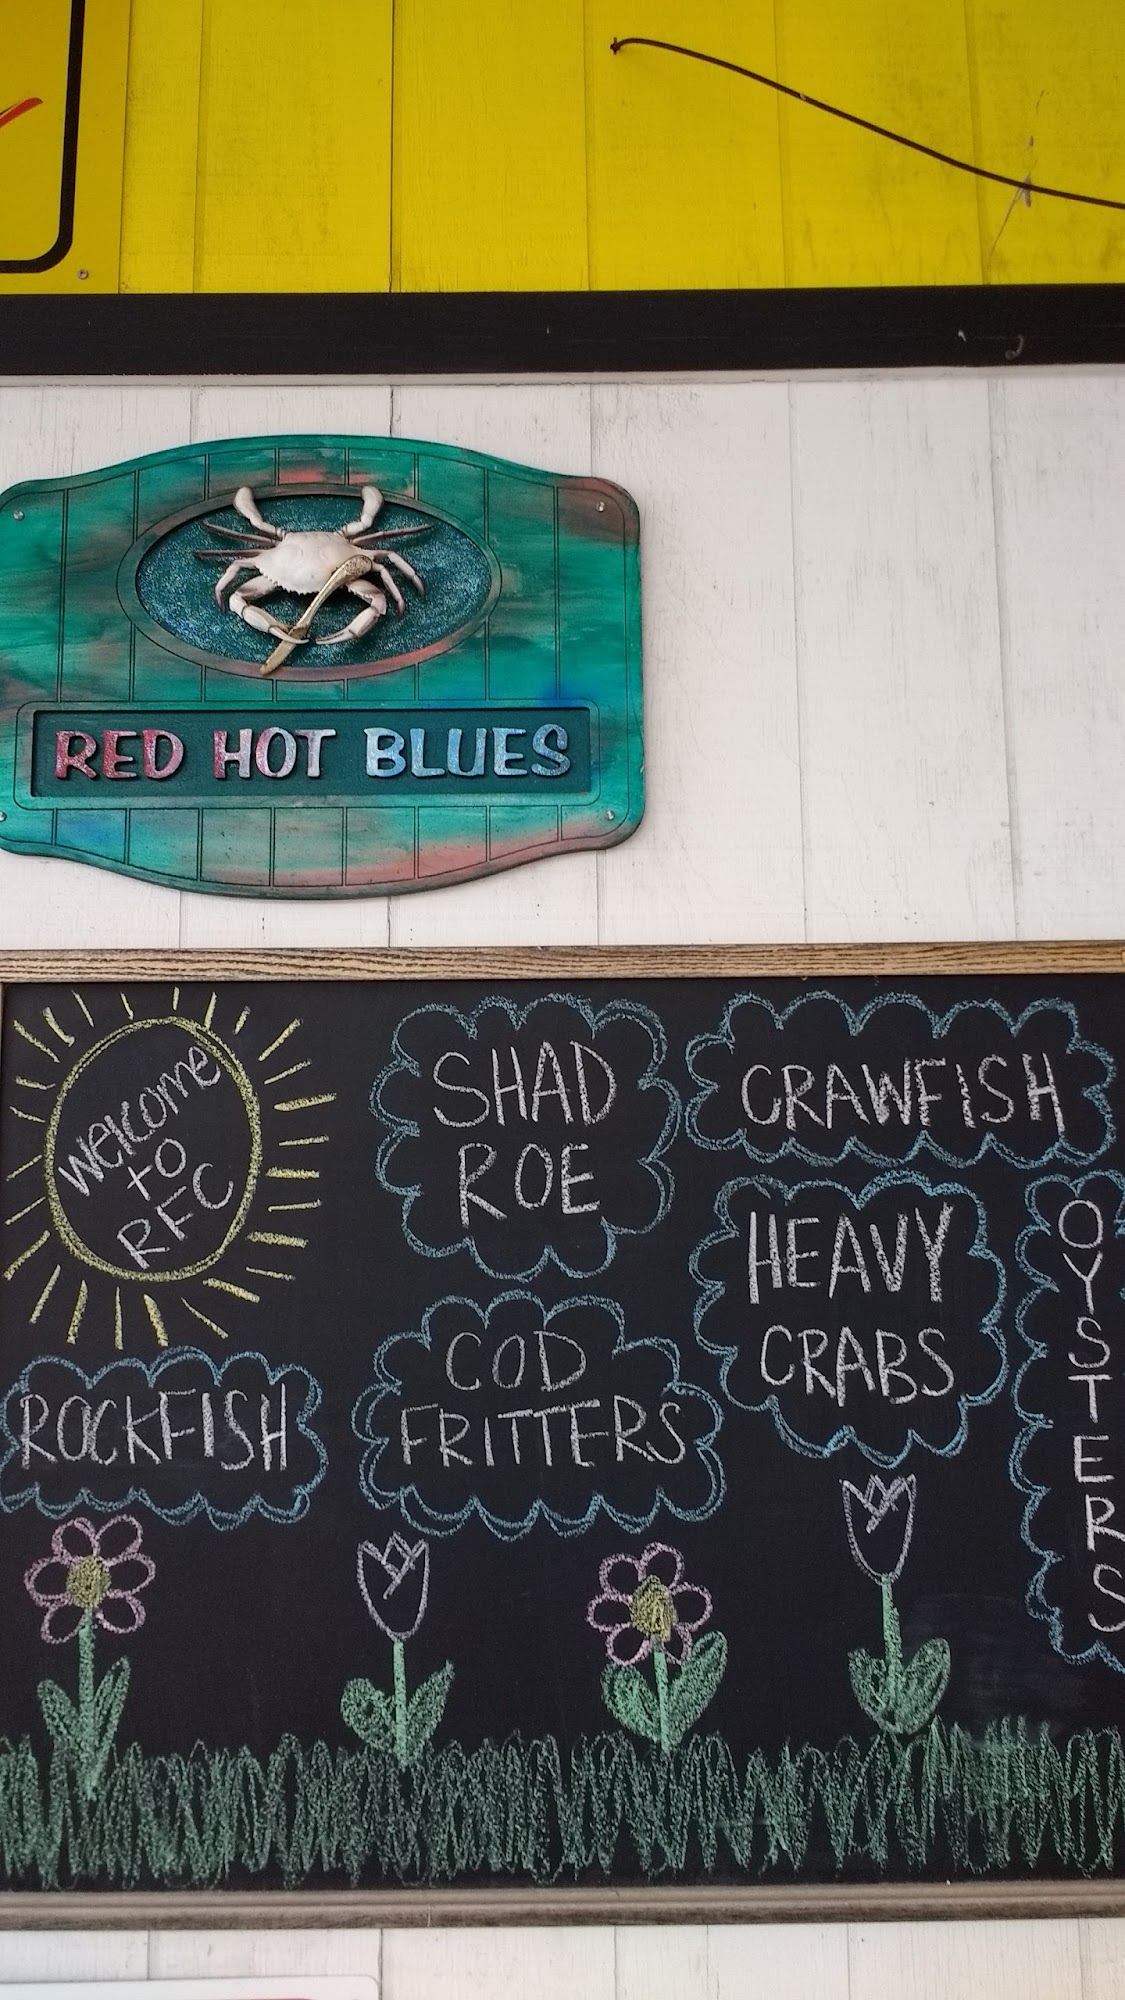 RED HOT BLUES
Welcome
to
RFC
SHAD
ROE
CRAWFISH
HEAVY
CRABS
OYSTERS
ROCKFISH
COD
FRITTERS